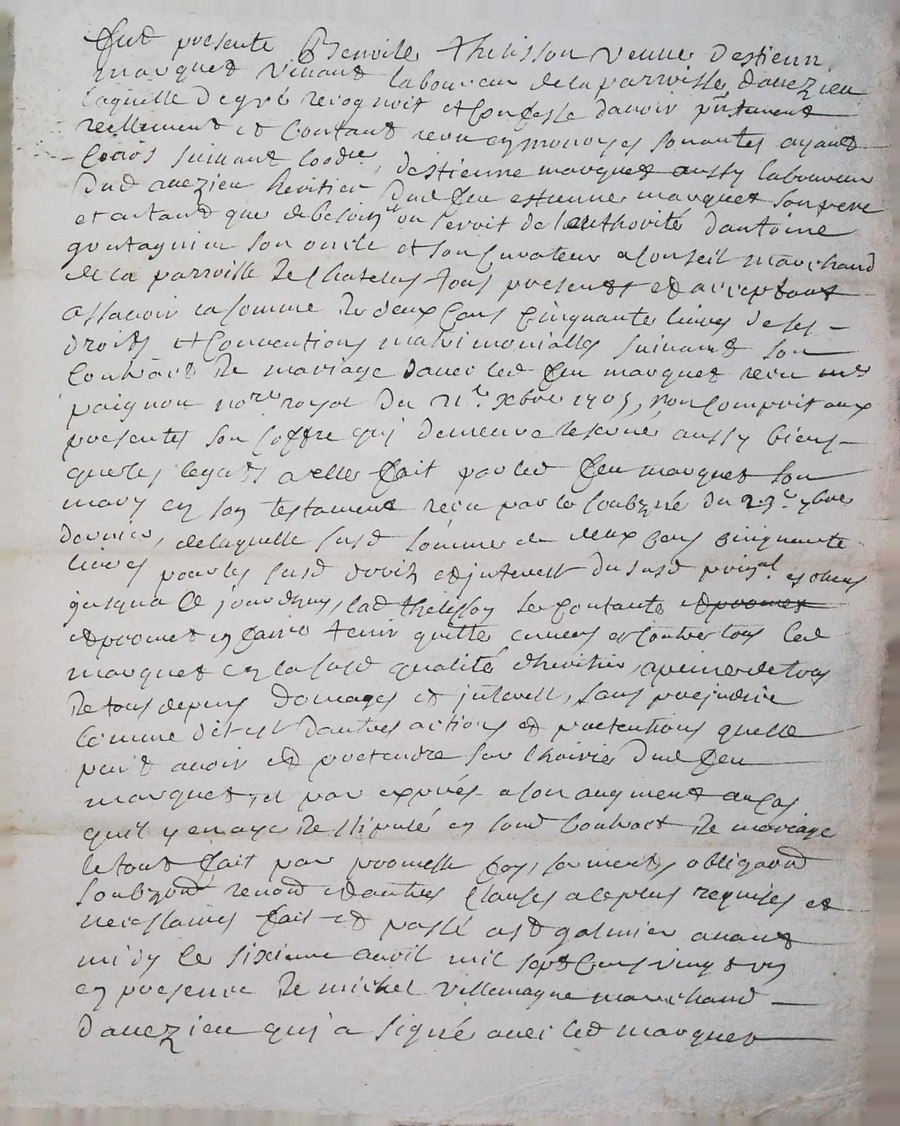 Fut presente Benoite thelisson veuve d'estienne
marquet vivant laboureur de la parroisse d'avezieu
laquelle de gré recognoit et confesse d'avoir pntement
reellement et contant receu en monoyes sonantes ayant
cours suivant l'ordce, d'estienne marquet aussy laboureur
dud avezieu heritier dud feu estienne marquet son pere
et autand que de besoing ou seroit de l'authorité d'antoine
son oncle et son curateur a conseil marchand
de la parroisse de chatelus tous presents et acceptant
assavoir la somme de deux cens cinquante livres de ses
droits et conventions matrimonialles suivant son
contract de mariage d'avec led feu marquet receu me
paignon nore royal du 21e xbre 1705, non comprit aux
presentes son coffre qui demeure reservé aussy biens
que les legats a elle fait par led feu marquet son
mary en son testament receu par le soubzné du 23e
dernier, de laquelle susd somme de deux cens cinquante
livres pour les susd droitz et interest du susd prinpal
jusqua ce jourdhuy, lad thelisson se contante et promet
et promet en faire tenir quitte envers et contre tous led
marquet en la susd qualité d'heritier, a peine de tous
de tous depens domages et interest, sans prejudice
comme dit est d'autres actions et pretentions quelle
peut avoir et pretendre sur l'hoirie dud feu
marquet, et par exprés a son augment au cas
quil y en aye de stipulé en sond contract de mariage
le tout fait par promesse foy, serment, obligaond
soubzond renond et autres clauses a ce plus requises et
necessaires fait et passé a st galmier avant
midy le sixieme avril mil sept cens vingt un
en presence de michel villemagne marchand
d'avezieu qui a signé avec led marquet